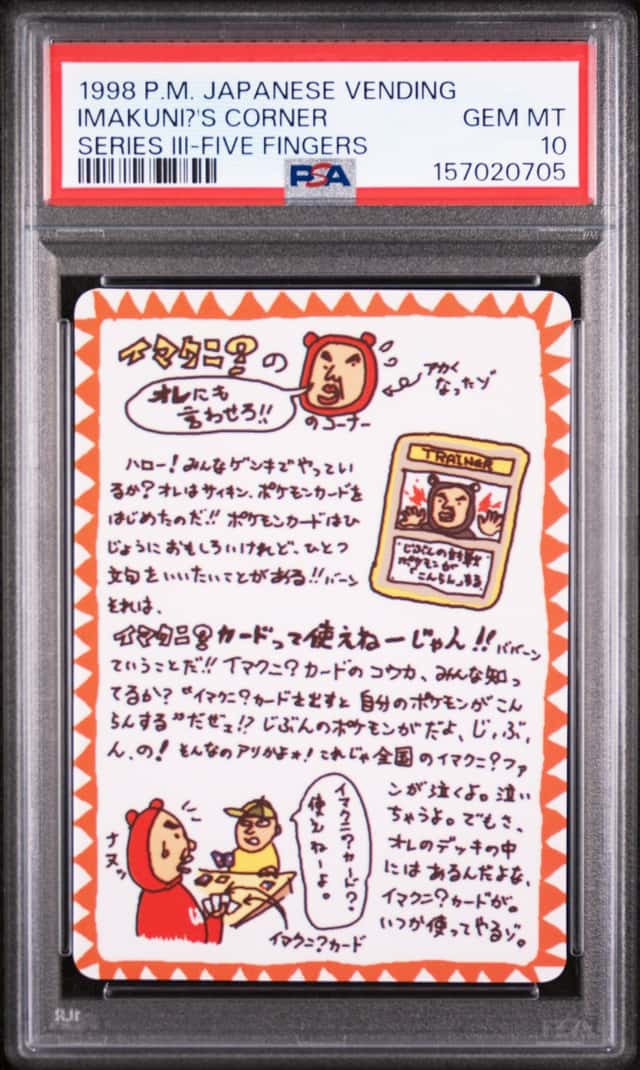 1998 P.M. JAPANESE VENDING
IMAKUNI?'S CORNER GEM MT
SERIES III-FIVE FINGERS 10
PSA 157020705
イマクニ?の
オレにも
言わせろ!!
のコーナー
アカく
なったゾ
ハロー!みんなゲンキでやってい
るか?オレはサイキン、ポケモンカードを
はじめたのだ!!ポケモンカードはひ
じょうにおもしろいけれど、ひとつ
文句をいいたいことがある!!バーン
それは、
TRAINER
じぶんの
ポケモンが
「こんらん」する
イマクニ?カードって使えねーじゃん!!ババーン
ていうことだ!!イマクニ?カードのコウカ、みんな知っ
てるか?"イマクニ?カードを出すと自分のポケモンがこん
らんする"だぜェ!?じぶんのポケモンがだよ、じ、ぶ、
ん、の!そんなのアリかよォ!これじゃ全国のイマクニ?ファ
ンが泣くよ。泣い
ちゃうよ。でもさ、
オレのデッキの中
にはあるんだよな、
イマクニ?カードが。
いつか使ってやるゾ。
ナヌッ
イマクニ?カード?
使えねーよ。
イマクニ?カード